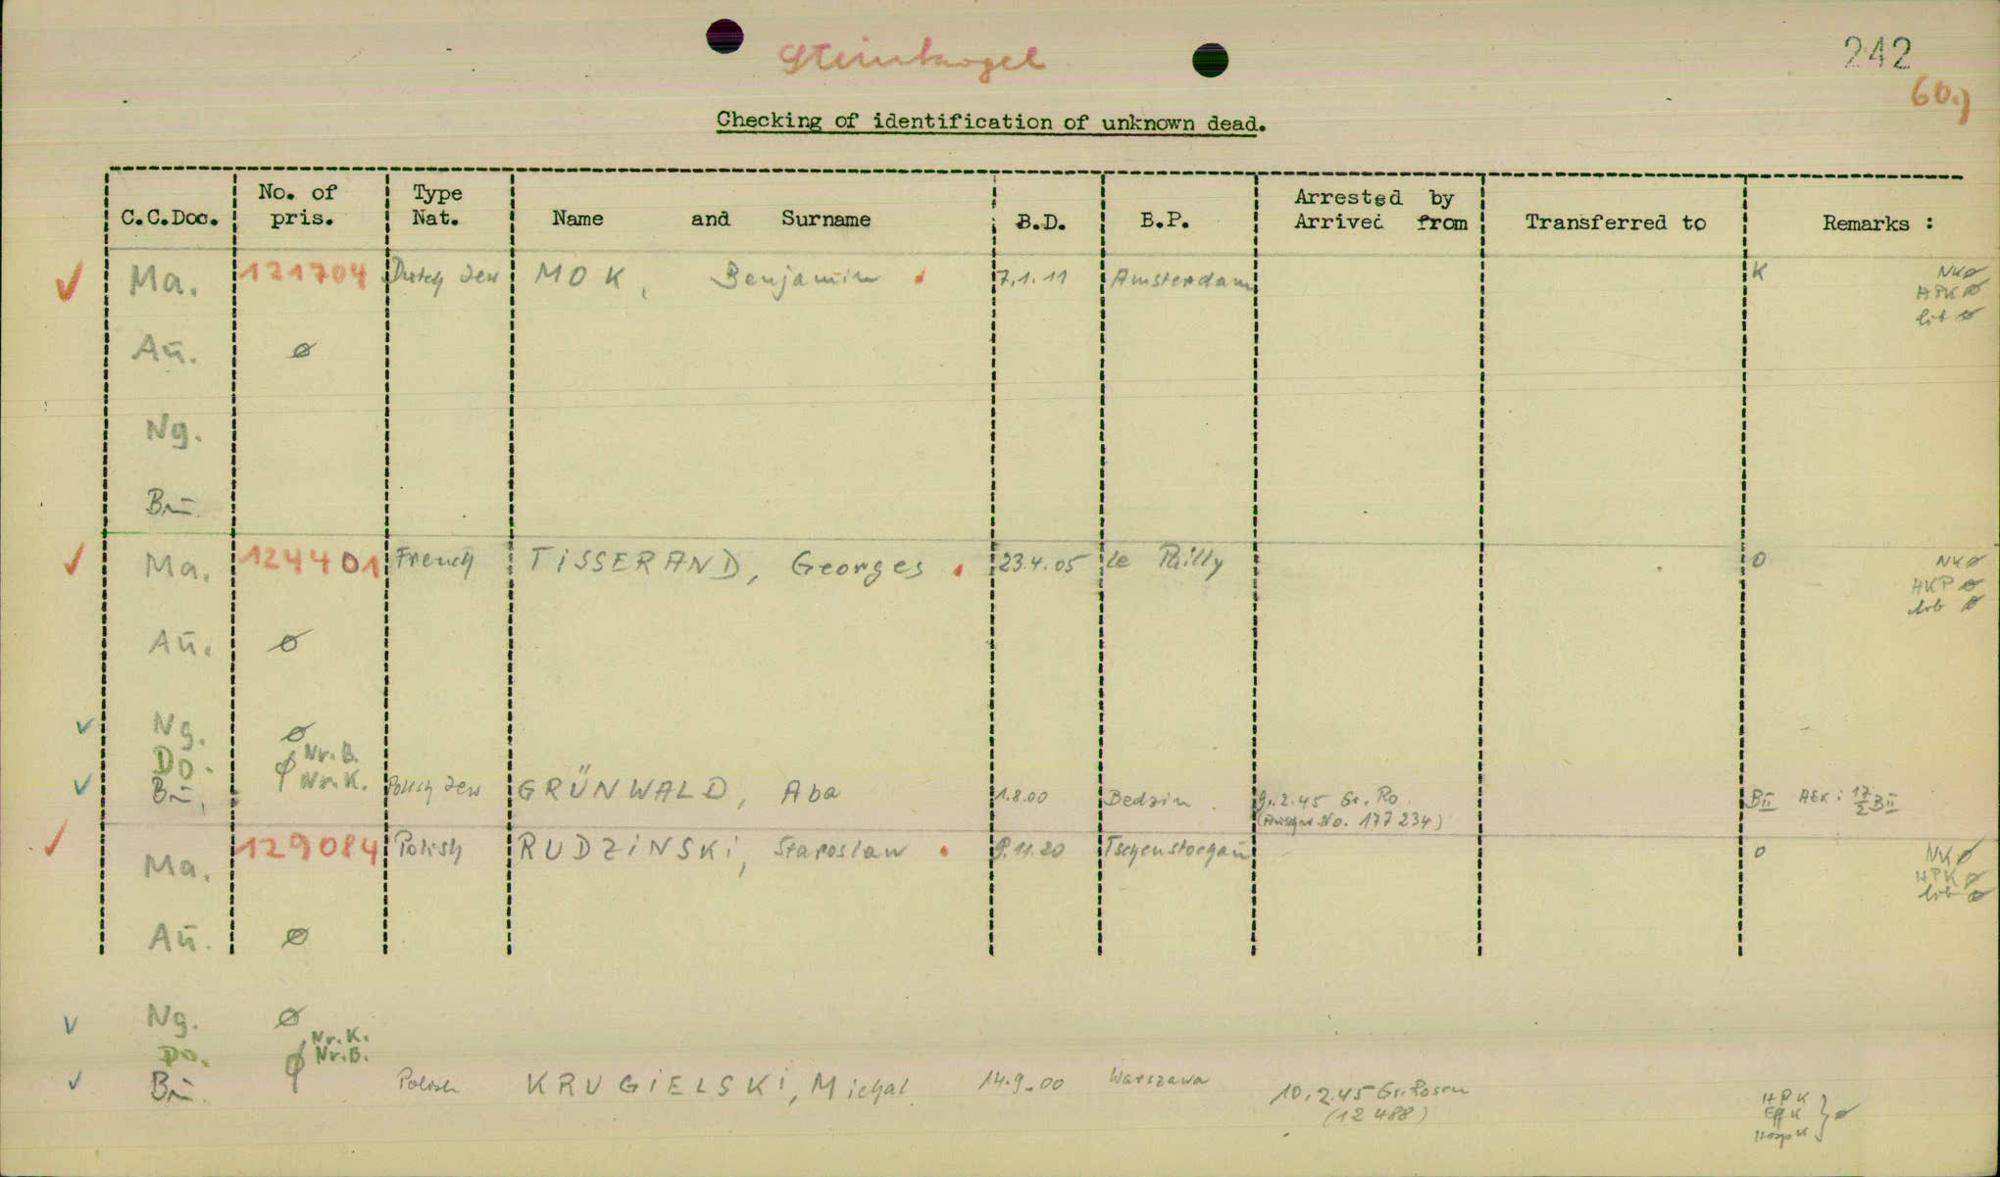 242
60.)
Checking of identification of unknown dead.
C.C.Doc. No. of pris. Type Nat. Name and Surname B.D. B.P. Arrested by Arrived from Transferred to Remarks :
Ma. 121704 Dutch Jew MOK, Benjamin 7.1.11 Amsterdam K NKø
HPKø
lib ø
Aū. ø
Ng.
Bū.
Ma. 124401 French TISSERAND, Georges 23.4.05 Le Pailly O NKø
HKP ø
lib ø
Aū. ø
Ng. ø
Do. ø Nr.B.
Bū. Nr.K. Polish Jew GRÜNWALD, Aba 1.8.00 Bedzin 9.2.45 Gr. Ro. BII AEK: 17/2 BII
No. 177234)
Ma. 129084 Polish RUDZINSKI, Staroslaw 9.11.20 O NKø
HPK ø
lib ø
Aū. ø
Ng. ø
Nr.K.
Do. ø Nr.B.
Bū. Polish KRUGIELSKI, Michal 14.9.00 Warszawa 10.2.45 Gr. Rosen
(12488)
HPK
EffK } ø